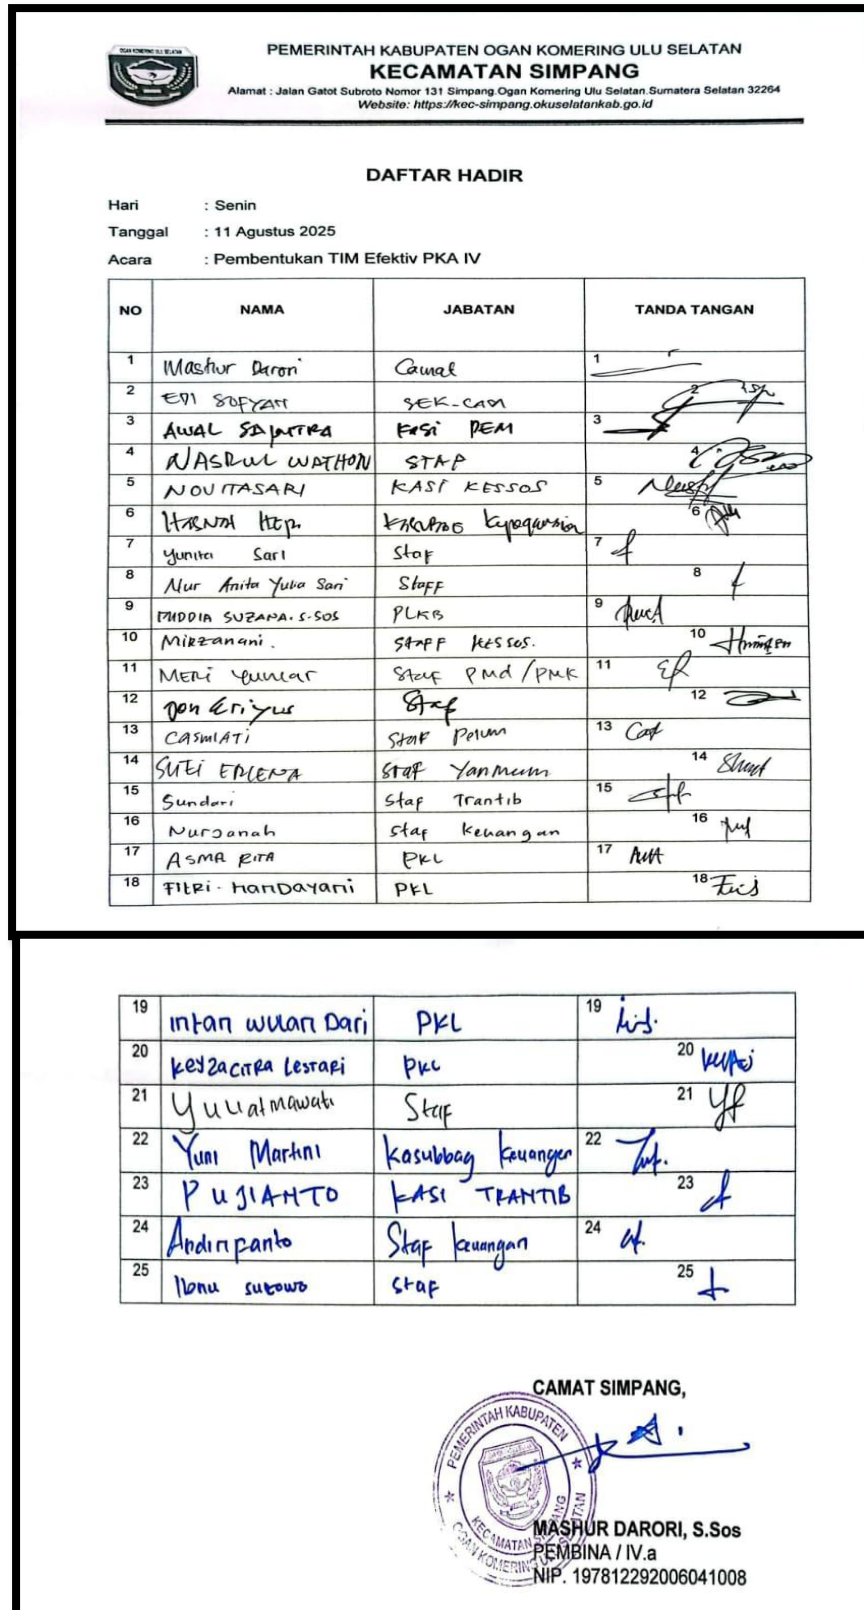 OGAN KOMERING ULU SELATAN
PEMERINTAH KABUPATEN OGAN KOMERING ULU SELATAN
KECAMATAN SIMPANG
Alamat : Jalan Gatot Subroto Nomor 131 Simpang.Ogan Komering Ulu Selatan.Sumatera Selatan 32264
Website: https://kec-simpang.okuselatankab.go.id
DAFTAR HADIR
Hari : Senin
Tanggal : 11 Agustus 2025
Acara : Pembentukan TIM Efektiv PKA IV
NO NAMA JABATAN TANDA TANGAN
1 Mashur Darori Camat 1
2 EDI SOFYAN SEK-CAM 2
3 AWAL SAPUTRA KASI PEM 3
4 NASRUL WATHON STAP 4
5 NOVITASARI KASI KESSOS 5
6 6
7 Yunita Sari Staf 7
8 Nur Anita Yulia Sari Staff 8
9 SUZANA. S-SOS PLKB 9
10 Mirzanani. STAFF KESSOS. 10
11 MERI Yuniar Staf PMd/PMK 11
12 Don Eriyus Staf 12
13 CASMIATI Staf Pelum 13
14 SUTI ERLENA Staf Yanmum 14
15 Sundari Staf Trantib 15
16 Nurjanah Staf keuangan 16
17 ASMA RITA PKL 17
18 FITRI HANDAYANI PKL 18
19 intan wulan Dari PKL 19
20 KEYZACITRA LESTARI PKL 20
21 Yuliatmawati Staf 21
22 Yuni Martini Kasubbag Keuangan 22
23 PUJIANTO KASI TRANTIB 23
24 Staf keuangan 24
25 Ibnu sutowo staf 25
CAMAT SIMPANG,
PEMERINTAH KABUPATEN
KECAMATAN SIMPANG
OGAN KOMERING ULU SELATAN
MASHUR DARORI, S.Sos
PEMBINA / IV.a
NIP. 197812292006041008